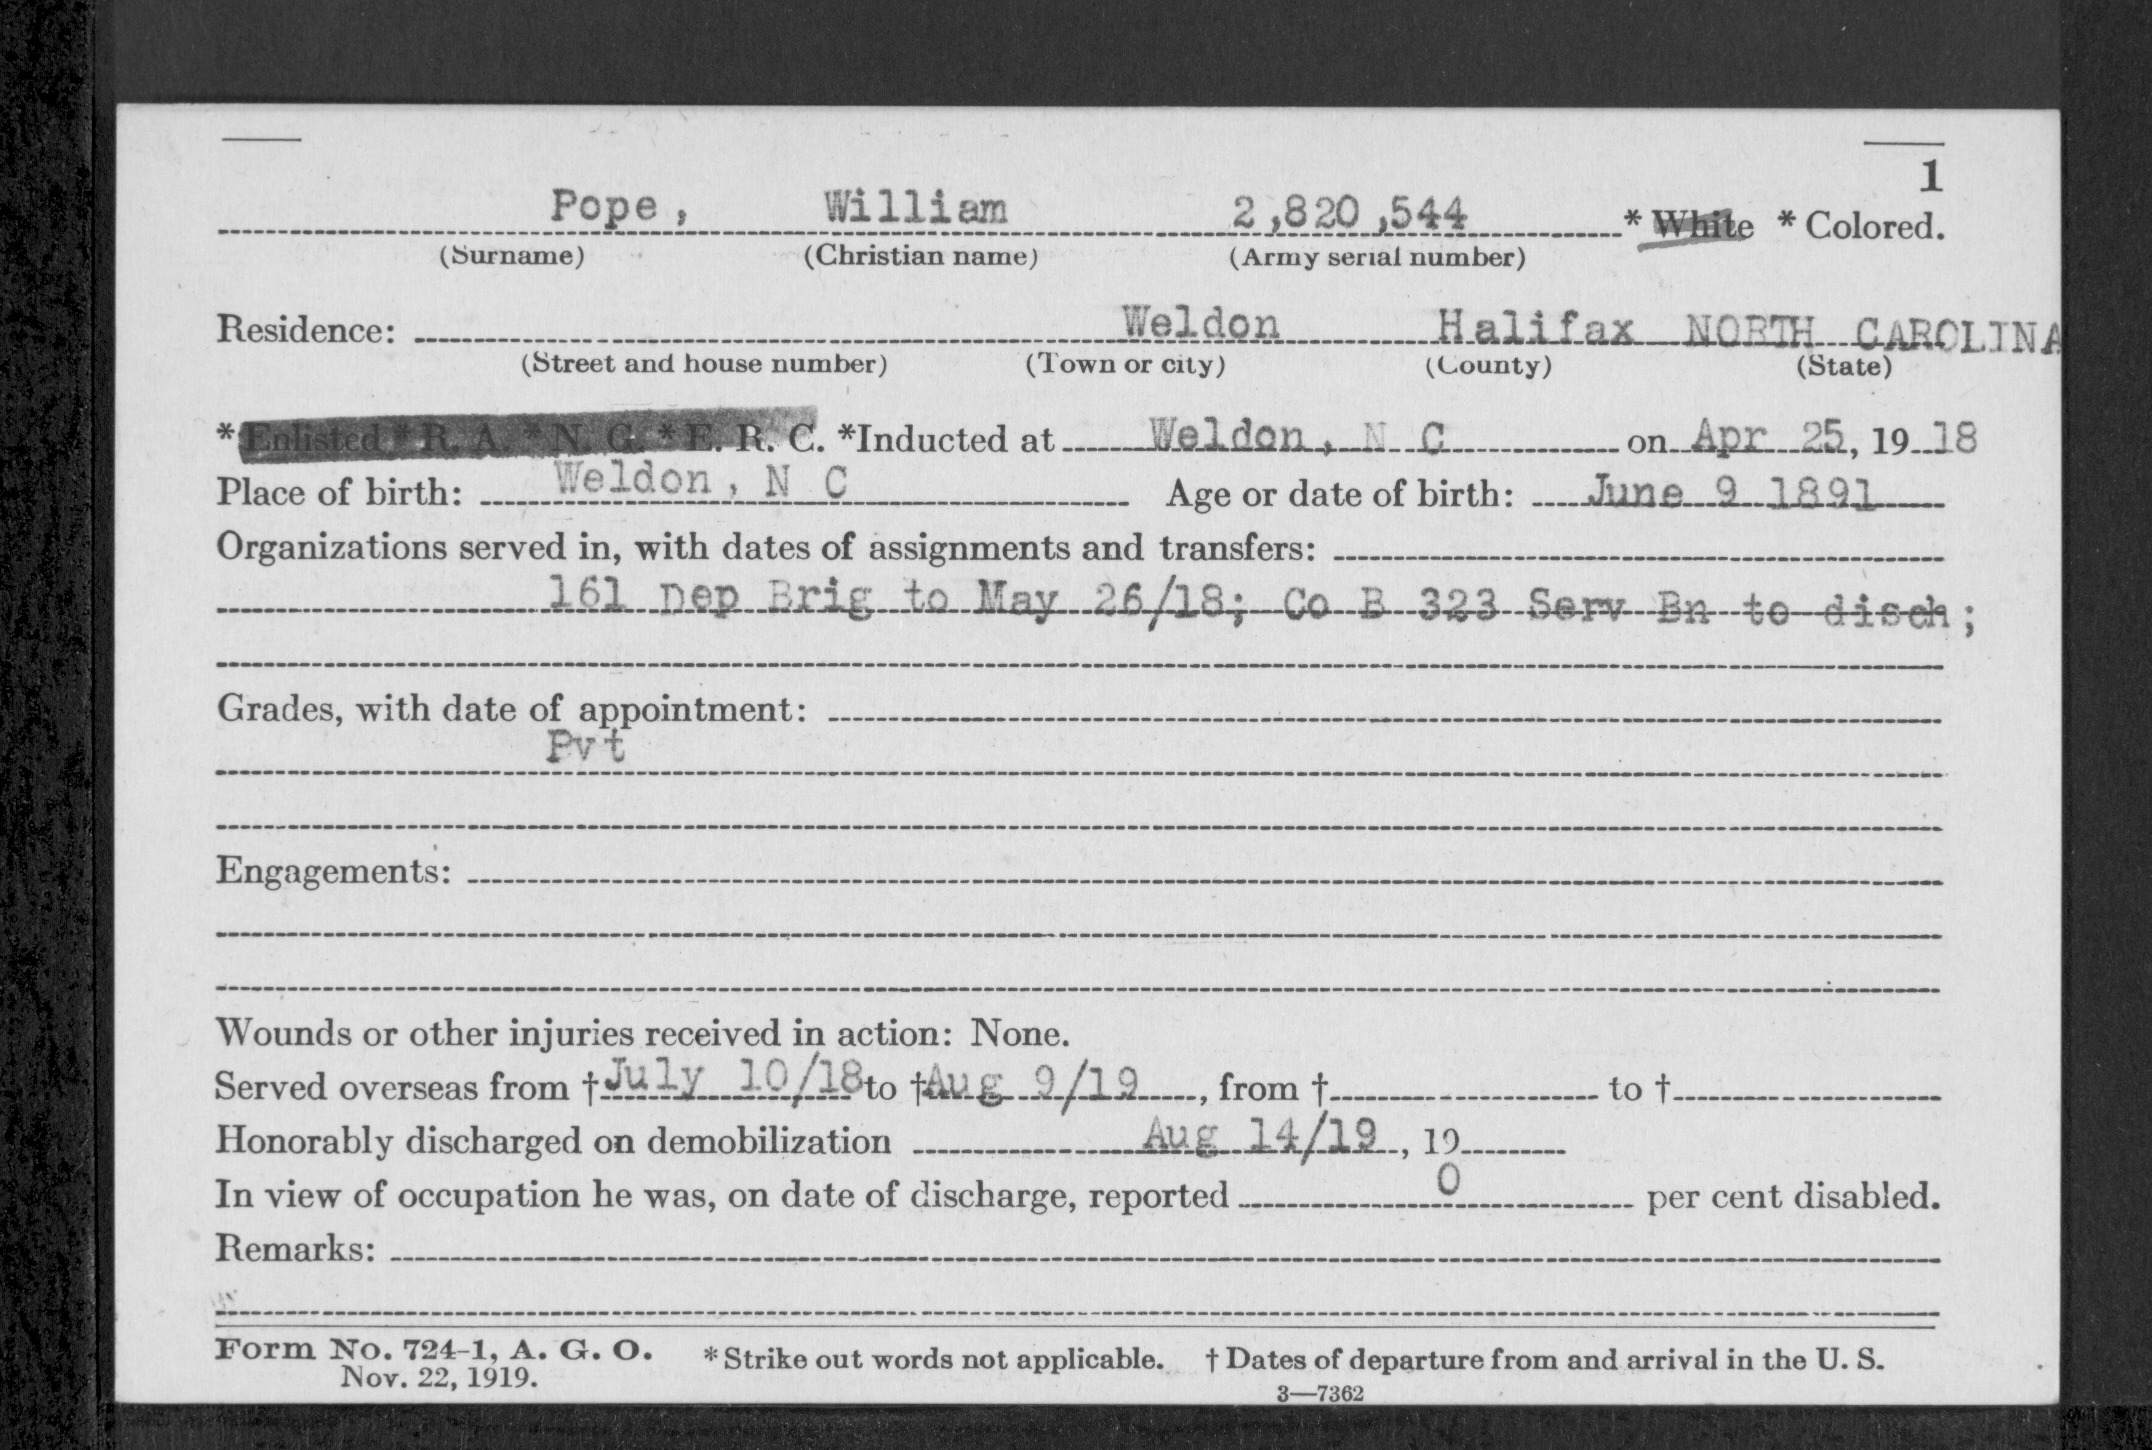 1
Pope, William 2,820,544 * White * Colored.
(Surname) (Christian name) (Army serial number)
Residence: Weldon Halifax NORTH CAROLINA
(Street and house number) (Town or city) (County) (State)
*Enlisted *R. A. *N. G. *E. R. C. *Inducted at Weldon, N C on Apr 25, 19 18
Place of birth: Weldon, N C Age or date of birth: June 9 1891
Organizations served in, with dates of assignments and transfers:
161 Dep Brig to May 26/18; Co B 323 Serv Bn to disch;
Grades, with date of appointment:
Pvt
Engagements:
Wounds or other injuries received in action: None.
Served overseas from †July 10/18 to †Aug 9/19, from † to †
Honorably discharged on demobilization Aug 14/19, 19
In view of occupation he was, on date of discharge, reported 0 per cent disabled.
Remarks:
Form No. 724-1, A. G. O. *Strike out words not applicable. † Dates of departure from and arrival in the U. S.
Nov. 22, 1919.
3—7362